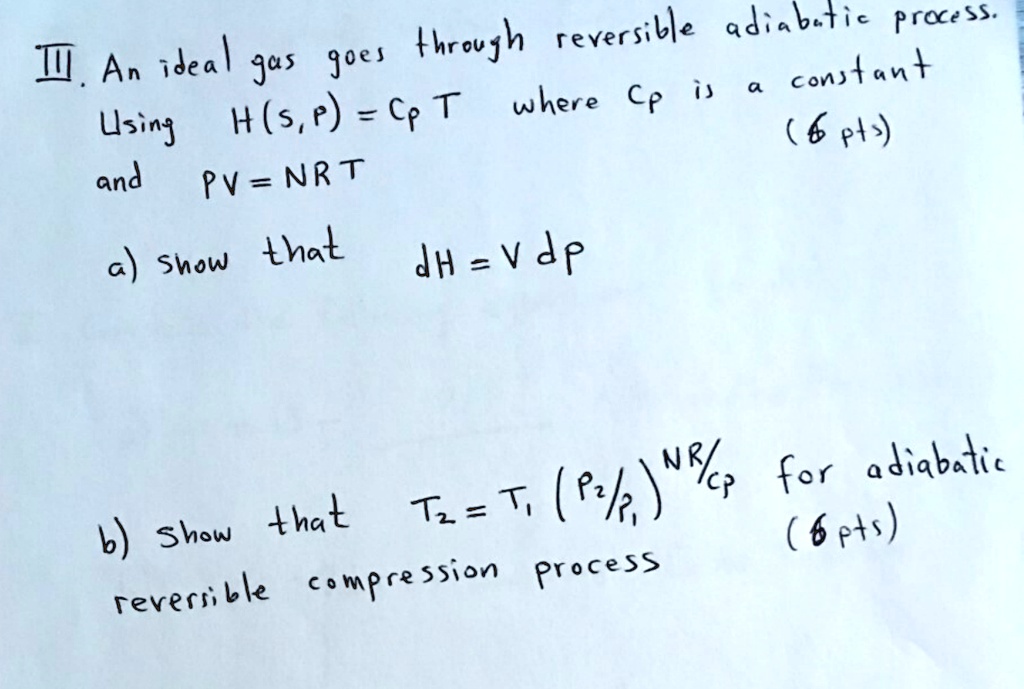 III. An ideal gas goes through reversible adiabatic process.
Using H(S,P) = Cp T where Cp is a constant
(6 pts)
and PV = NRT
a) Show that dH = V dp
b) Show that T₂ = T₁ (P₂/P₁)^NR/Cp for adiabatic
(6 pts)
reversible compression process